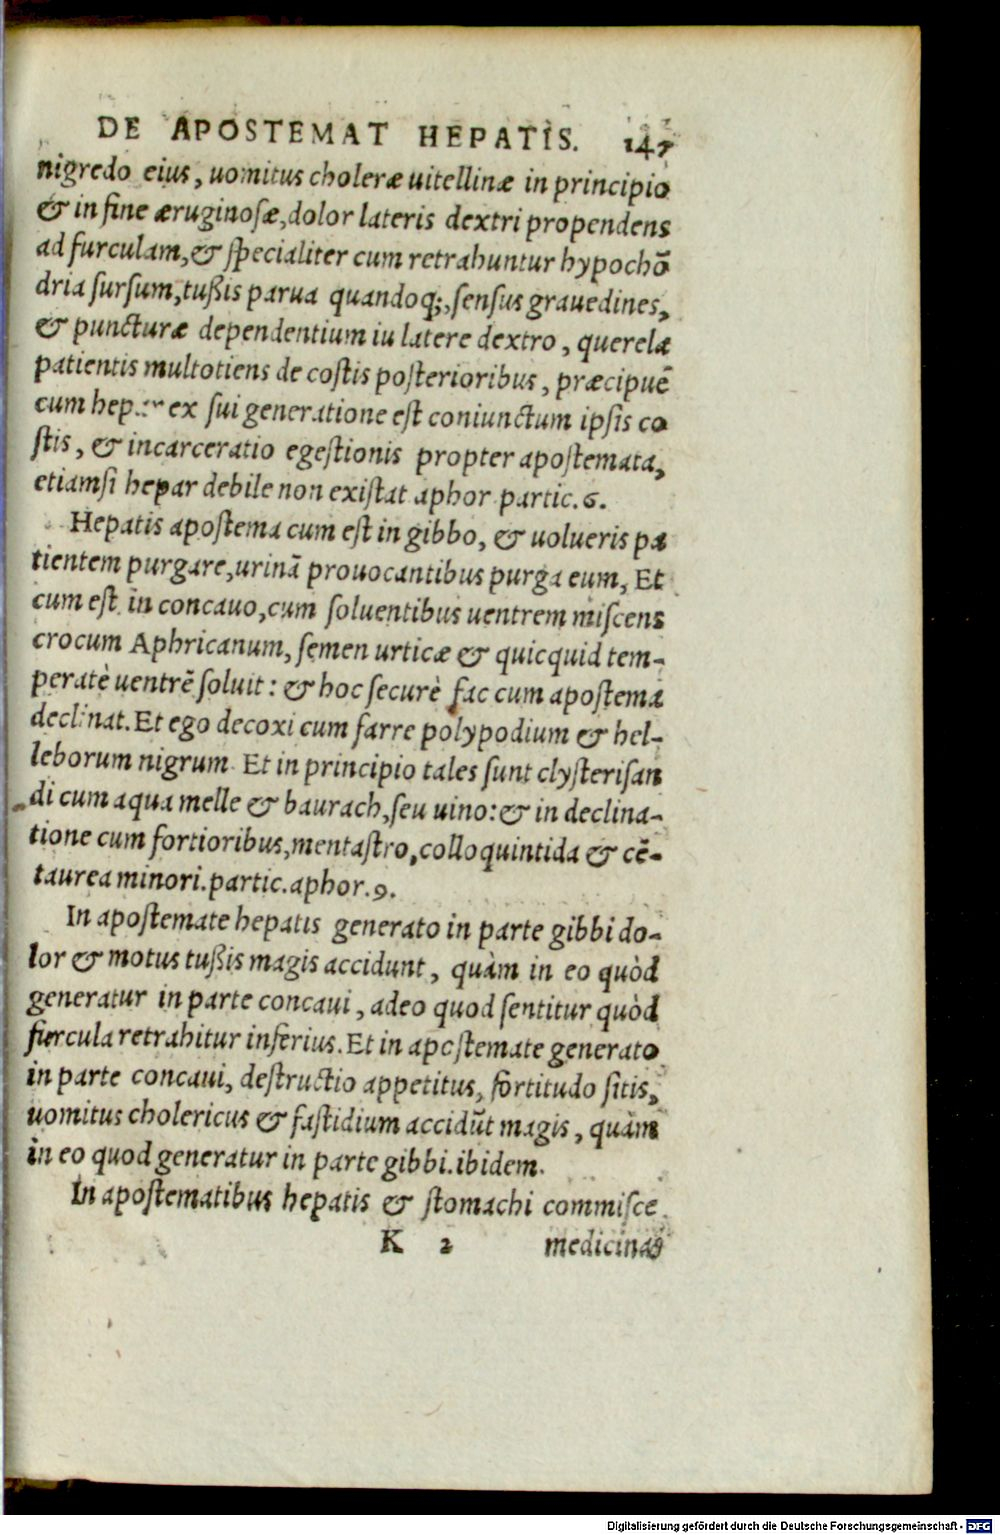 DE APOSTEMAT HEPATIS. 147
nigredo eius, uomitus choleræ uitellinæ in principio
& in fine æruginosæ, dolor lateris dextri propendens
ad furculam, & specialiter cum retrahuntur hypochõ
dria sursum, tußis parua quandoq;, sensus grauedines,
& puncturæ dependentium iu latere dextro, querelæ
patientis multotiens de costis posterioribus, præcipuẽ
cum hepar ex sui generatione est coniunctum ipsis co
stis, & incarceratio egestionis propter apostemata,
etiamsi hepar debile non existat aphor partic. 6.
Hepatis apostema cum est in gibbo, & uolueris pa
tientem purgare, urinã prouocantibus purga eum, Et
cum est in concauo, cum soluentibus uentrem miscens
crocum Aphricanum, semen urticæ & quicquid tem-
peratè uentrẽ soluit: & hoc securè fac cum apostema
declinat. Et ego decoxi cum farre polypodium & hel-
leborum nigrum Et in principio tales sunt clysterisan
di cum aqua melle & baurach, seu uino: & in declina-
tione cum fortioribus, mentastro, colloquintida & cẽ-
taurea minori. partic. aphor. 9.
In apostemate hepatis generato in parte gibbi do-
lor & motus tußis magis accidunt, quàm in eo quòd
generatur in parte concaui, adeo quod sentitur quòd
furcula retrahitur inferius. Et in apostemate generato
in parte concaui, destructio appetitus, fortitudo sitis,
uomitus cholericus & fastidium accidũt magis, quàm
in eo quod generatur in parte gibbi. ibidem.
In apostematibus hepatis & stomachi commisce
K 2 medicinas
Digitalisierung gefördert durch die Deutsche Forschungsgemeinschaft - DFG